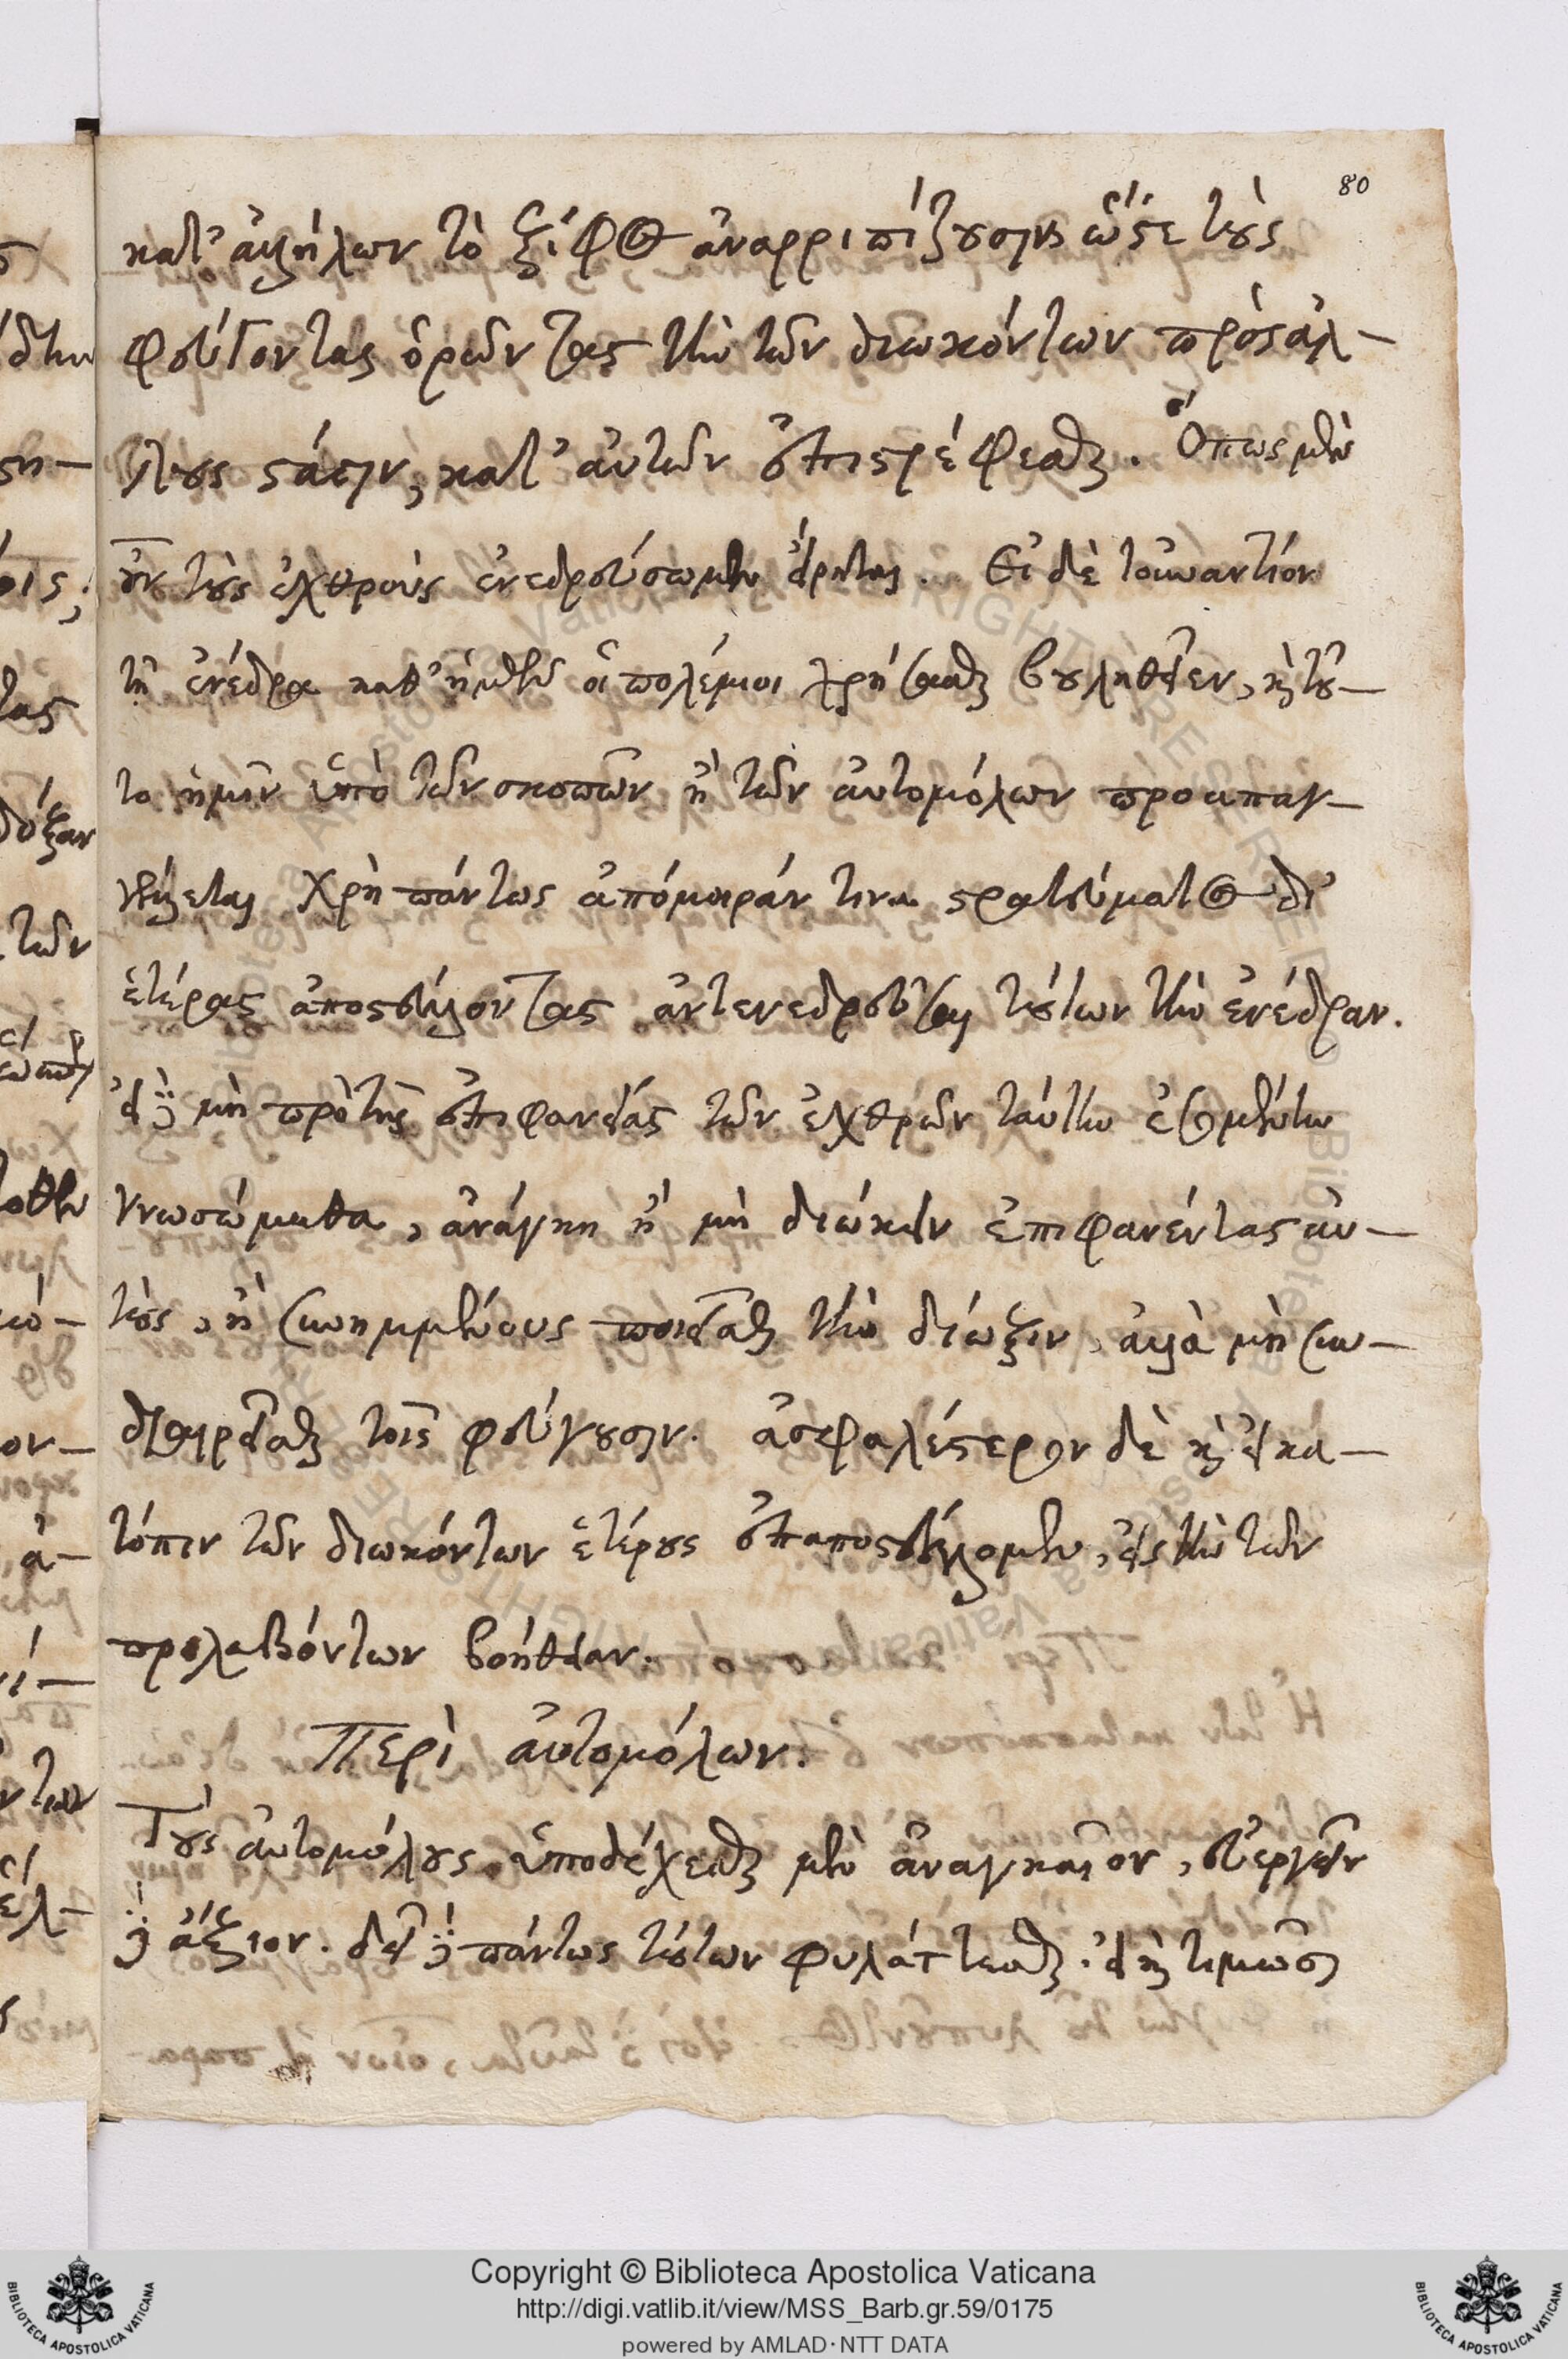 80
κατ' ἀλλήλων τὸ ξίφος ἀναρριπίζουσιν, ὥστε τοὺς
φεύγοντας ὁρῶντας τὴν τῶν διωκόντων πρὸς ἀλ-
λήλους στάσιν, κατ' αὐτῶν ἐπιστρέφεσθαι. Ὅπως μὲν
οὖν τοὺς ἐχθροὺς ἐνεδρεύσωμεν εἴρηται. Εἰ δὲ τοὐναντίον
τῇ ἐνέδρᾳ καθ' ἡμῶν οἱ πολέμιοι χρήσασθαι βουληθεῖεν, καὶ τοῦ-
το ἡμῖν ὑπὸ τῶν σκοπῶν ἢ τῶν αὐτομόλων προαπαγ-
γέλλεται, χρὴ πάντως ἀπόμοιράν τινα στρατεύματος δι'
ἑτέρας ἀποστείλοντας ἀντενεδρεῦσαι τούτων τὴν ἐνέδραν.
εἰ δὲ μὴ πρὸ τῆς ἐπιφανείας τῶν ἐχθρῶν ταύτην ἐσομένην
γνωσώμεθα, ἀνάγκη ἢ μὴ διώκειν ἐπιφανέντας αὐ-
τοὺς, ἢ συνημμένους ποιεῖσθαι τὴν δίωξιν, ἀλλὰ μὴ συν-
διαιρεῖσθαι τοῖς φεύγουσιν. ἀσφαλέστερον δὲ καὶ εἰ κα-
τόπιν τῶν διωκόντων ἑτέρους ἐπαποστέλλομεν, εἰς τὴν τῶν
προλαβόντων βοήθειαν.
Περὶ αὐτομόλων.
Τοὺς αὐτομόλους ὑποδέχεσθαι μὲν ἀναγκαῖον, εὐεργετεῖν
δὲ ἄξιον. δεῖ δὲ πάντως τούτων φυλάττεσθαι. εἰ καὶ τιμῶσι
Copyright © Biblioteca Apostolica Vaticana
http://digi.vatlib.it/view/MSS_Barb.gr.59/0175
powered by AMLAD·NTT DATA